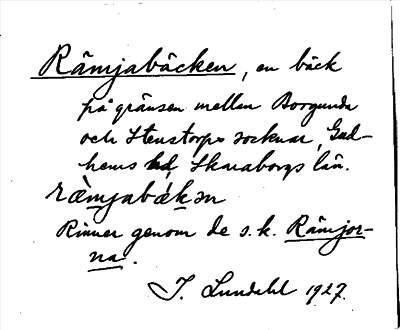 Rämjabäcken, en bäck
på gränsen mellan Borgunda
och Stenstorps socknar, Gud-
hems hd, Skaraborgs län.
ræ̀mjabækən
Rinner genom de s.k. Rämjor-
na.
J. Lundahl 1927.